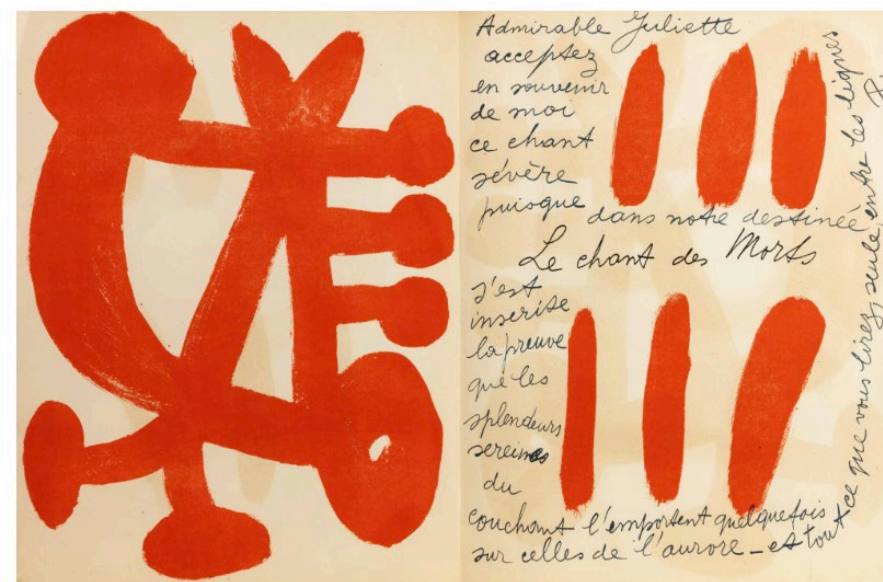 Admirable Juliette
acceptez
en souvenir
de moi
ce chant
sévère
puisque dans notre destinée
Le chant des Morts
s'est
inscrite
la preuve
que les
splendeurs
sereines
du
couchant l'emportent quelquefois
sur celles de l'aurore – et tout
ce que vous lirez, seule, entre les lignes